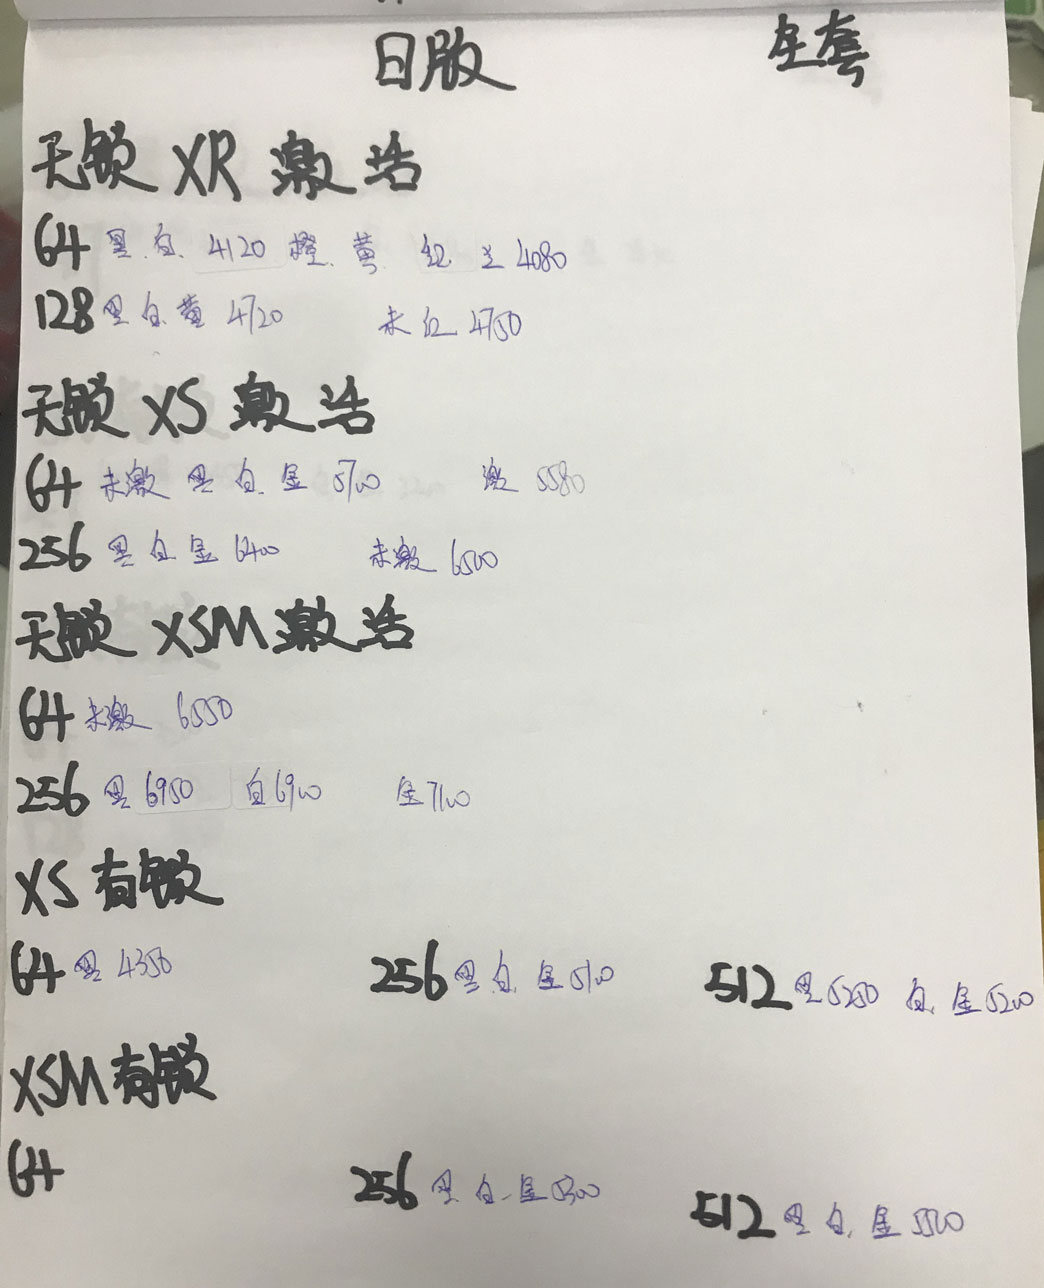 日版 全套
无锁 XR 激活
64 黑.白. 4120 橙.黄.红 兰 4080
128 黑 白.黄 4720 未红 4750
无锁 XS 激活
64 未激 黑 白.金 5700 激 5580
256 黑 白 金 6400 未激 6500
无锁 XSM 激活
64 未激 6550
256 黑 6950 白 6900 金 7100
XS 有锁
64 黑 4350 256 黑.白.金 5100 512 黑 5250 白.金 5200
XSM 有锁
64 256 黑 白.金 5300 512 黑 白.金 5500